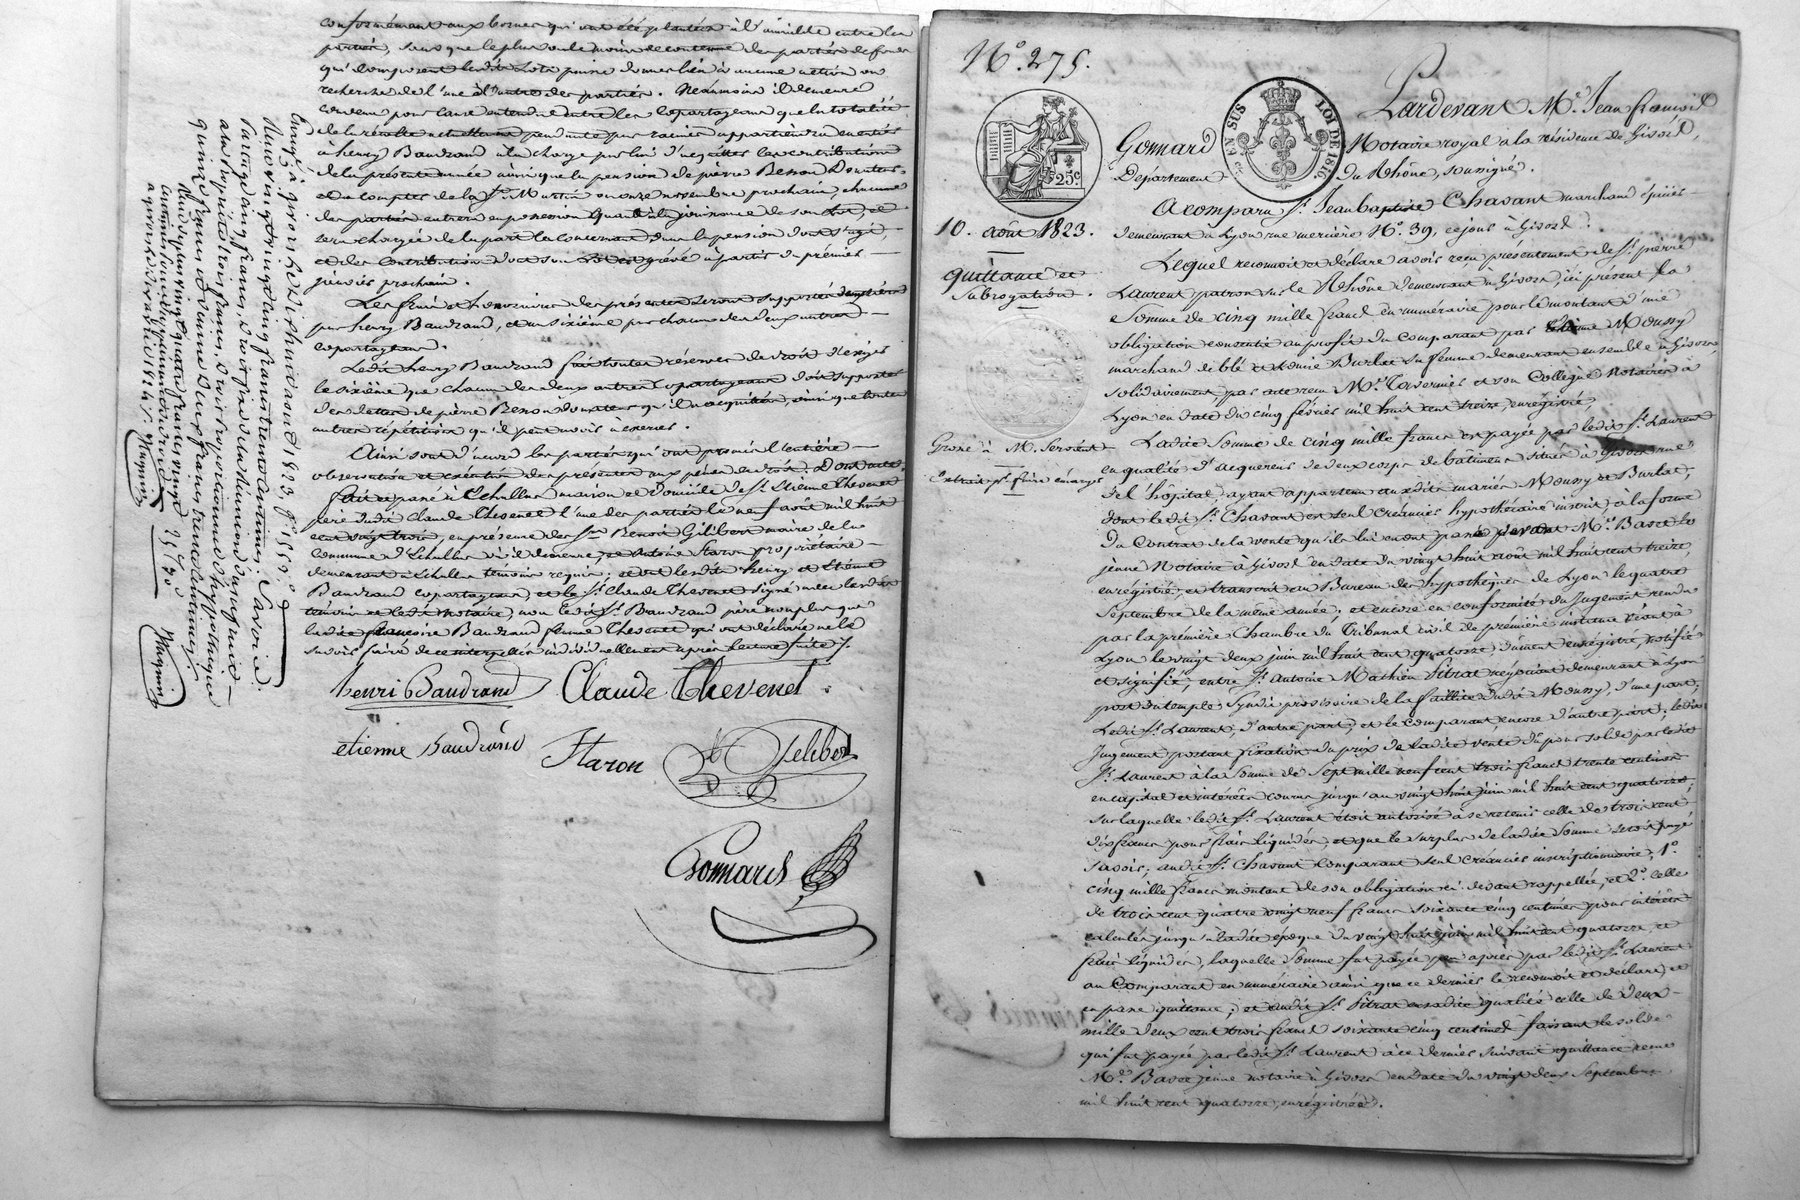 conformément aux bornes qui ont été plantées à l'amiable entre les
parties, sans que le plus ou le moins de contenue des parties de fonds
qui composent lesdits lots puisse donner lieu à aucune action ou
recherche de l'une à l'autre des parties. Néanmoins il demeure
convenu pour cause entendue entre les copartageans que la totalité
de la récolte actuellement pendante par racines appartiendra en entier
à henry Baudrand à la charge par lui d'acquitter les contributions
de la présente année ainsi que la pension de pierre Benson Donateur
et à compter de la St. Martin ou onze novembre prochain, chacune
des parties entrera en possession et jouissance de son lot, et
sera chargée de la part la concernant dans la pension dont s'agit,
et des Contributions dont son lot est grevé à partir du premier
janvier prochain.
Les frais et honoraires des présentes seront supportés
par henry Baudrand, et un sixième par chacun des deux autres
copartageans.
Ledit henry Baudrand fait toutes réserves de droit d'exiger
le sixième que chacun des deux autres Copartageans doit supporter
des dettes de pierre Benson donateur qu'il a acquittées, ainsi que toutes
autres répétitions qu'il peut avoir à exercer.
Ainsi sont d'accord les parties qui ont promis l'entière
observation et exécution des présentes aux peines de droit. Dont acte
fait et passé à Echallas maison et domicile de Sr. Etienne Thevenet
père dudit Claude Thevenet l'une des parties le neuf août mil huit
cent vingt trois, en présence des Srs. Benoit Gilibert maire de la
Commune d'Echallas où il demeure, et Antoine Staron propriétaire
demeurant à Echallas témoins requis; et ont lesdits henry et Etienne
Baudrand copartageans, et le Sr. Claude Thevenet signé avec lesdits
témoins et ledit notaire, non ledit Sr. Baudrand père non plus que
ladite françoise Baudrand femme Thevenet qui ont déclaré ne le
savoir faire de ce interpellés individuellement après lecture faite.
henri Baudrand Claude Thevenet
etienne baudrand Staron Gelibert
Gonnard
Enregistré à Givors le dix huit août 1823
Reçu vingt cinq francs trente centimes; Savoir:
Partage cinq francs,
Magnin
Magnin
N°. 275.
EN SUS LOI DE 1816
25c
10. août 1823.
quittance et
Subrogation.
Grossé à M. Servant
Extrait pr. faire émarger
Pardevant Me. Jean françois
Gonnard Notaire royal à la résidence de Givors,
Département du Rhône, soussigné.
A comparu Sr. Jean baptiste Chavant marchand épicier
demeurant à Lyon rue mercière N°. 39, ce jour à Givors.
Lequel reconnoit et déclare avoir reçu présentement de Sr. pierre
Laurent patron sur le Rhône demeurant à Givors, ici présent la
Somme de cinq mille francs en numéraire pour le montant d'une
obligation consentie au profit du comparant par Moussy
marchand de blé et Burlat sa femme demeurant ensemble à Givors,
solidairement, par acte reçu Me. Tavernier et son Collègue Notaires à
Lyon en date du cinq février mil huit cent treize, enregistré.
Ladite Somme de cinq mille francs est payée par ledit Sr. Laurent
en qualité d'acquereur de deux corps de bâtimens situés à Givors rue
de l'hôpital, ayant appartenu auxdits mariés Moussy et Burlat,
dont ledit Sr. Chavant est seul créancier hypothécaire inscrit, à la forme
du Contrat de la vente qu'ils lui en ont passée pardevant Me. Basset
jeune Notaire à Givors en date du vingt huit août mil huit cent treize,
enregistré, et transcrit au Bureau des hypothèques de Lyon le quatre
Septembre de la même année; et encore en conformité du Jugement rendu
par la première Chambre du Tribunal civil de première instance séant à
Lyon le vingt deux juin mil huit cent quatorze dûment enregistré, notifié
et signifié, entre Sr. Antoine Mathieu Pitrat négociant demeurant à Lyon
port du temple, Syndic provisoire de la faillite dudit Moussy, d'une part,
Ledit Sr. Laurent, d'autre part, et le comparant, encore d'autre part; ledit
Jugement portant fixation du prix de ladite vente dû pour solde par ledit
Sr. Laurent à la Somme de Sept mille neuf cent trois francs trente centimes
en capital et intérêts courus jusqu'au vingt huit juin mil huit cent quatorze,
sur laquelle ledit Sr. Laurent étoit autorisé à se retenir celle de trois cent
dix francs pour frais liquidés, et que le surplus de ladite Somme seroit payé
savoir, audit Sr. Chavant comparant seul créancier inscriptionnaire, 1°.
cinq mille francs montant de son obligation ci-devant rappellée, et 2°. celle
de trois cent quatre vingt neuf francs soixante cinq centimes pour intérêts
calculés jusqu'à ladite époque du vingt huit juin mil huit cent quatorze, et
frais liquidés, laquelle Somme fut payée peu après par ledit Sr. Laurent
au Comparant en numéraire ainsi que ce dernier le reconnoit et déclare, et
en passe quittance; et audit Sr. Pitrat en sadite qualité celle de deux
mille deux cent trois francs soixante cinq centimes faisant le solde
qui fut payée par ledit Sr. Laurent à ce dernier suivant quittance reçue
Me. Basset jeune notaire à Givors en date du vingt deux Septembre
mil huit cent quatorze, enregistrée.